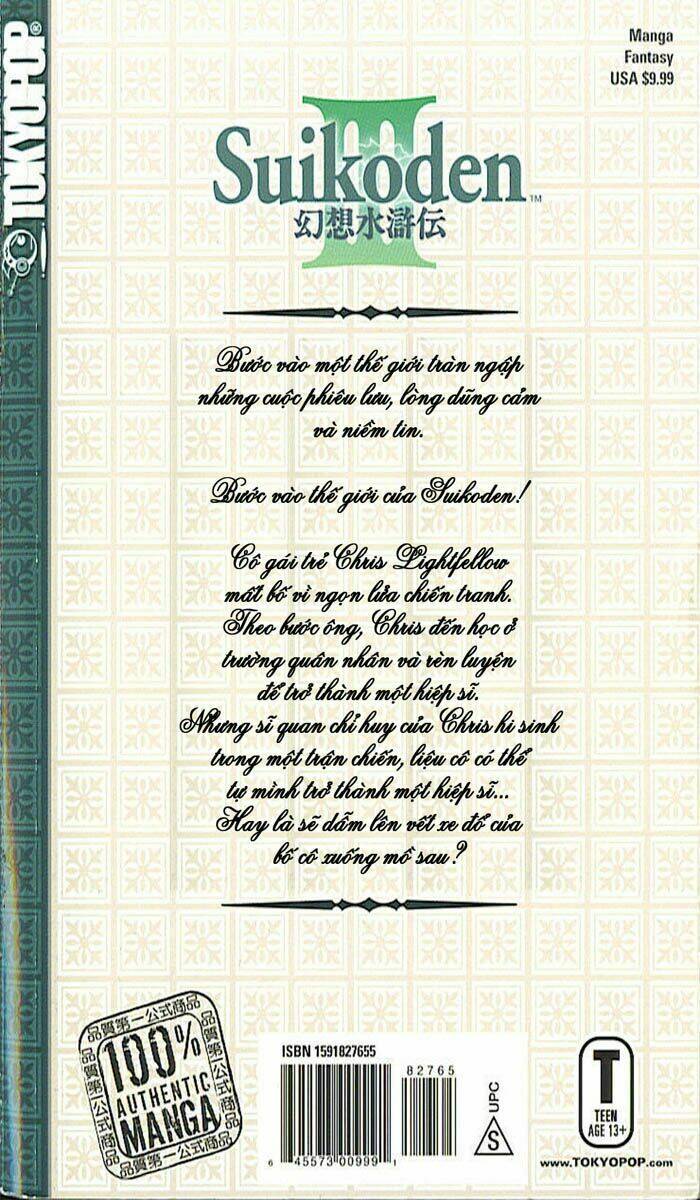 TOKYOPOP®
Manga
Fantasy
USA $9.99
III
Suikoden™
幻想水滸伝
Bước vào một thế giới tràn ngập
những cuộc phiêu lưu, lòng dũng cảm
và niềm tin.
Bước vào thế giới của Suikoden!
Cô gái trẻ Chris Lightfellow
mất bố vì ngọn lửa chiến tranh.
Theo bước ông, Chris đến học ở
trường quân nhân và rèn luyện
để trở thành một hiệp sĩ.
Nhưng sĩ quan chỉ huy của Chris hi sinh
trong một trận chiến, liệu cô có thể
tự mình trở thành một hiệp sĩ...
Hay là sẽ dẫm lên vết xe đổ của
bố cô xuống mồ sau?
品質第一公式商品
品質第一公式商品
品質第一公式商品
品質第一公式商品
100%
AUTHENTIC
MANGA
ISBN 1591827655
82765
6 45573 00999 1
S
UPC
T
TEEN
AGE 13+
www.TOKYOPOP.com